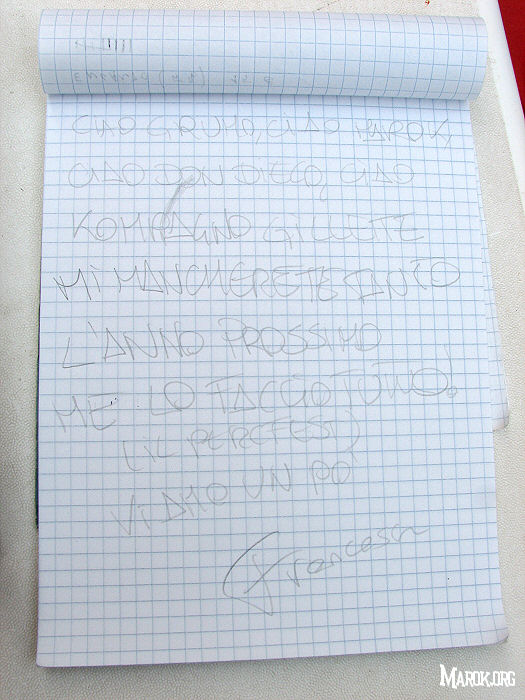 CIAO GRUMO, CIAO MAROK,
CIAO DON DIEGO, CIAO
KOMPAGNO GILLETTE
MI MANCHERETE TANTO
L'ANNO PROSSIMO
ME LO FACCIO TUTTO!
(IL PEREFEST)
VI AMO UN PO'
Francesca
MAROK.ORG